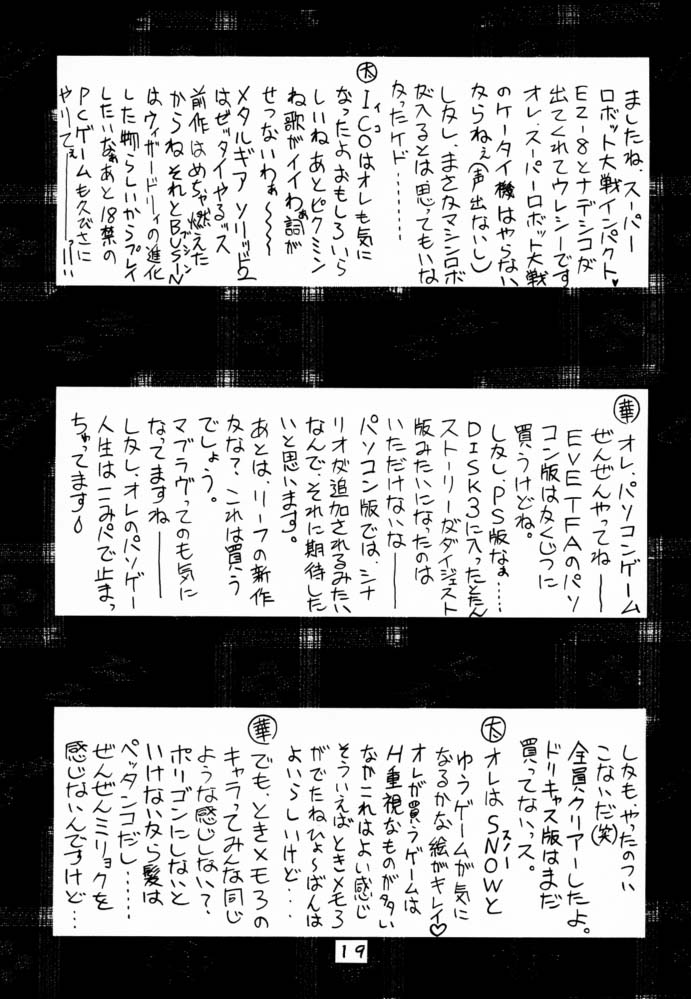 ましたね、スーパー
ロボット大戦インパクト♥
EZ-8とナデシコが
出てくれてウレシーです
オレ、スーパーロボット大戦
のケータイ機はやらない
からねぇ(声出ないし)
しかし、まさかマシンロボ
が入るとは思ってもいな
かったケド………
㊍ ICOはオレも気に
イコ
なったよおもしろいら
しいねあとピクミン
ね歌がイイわぁ詞が
せつないわぁ〜〜〜
メタルギアソリッド2
はゼッタイやるッス
前作はめちゃ燃えた
からねそれとBUSIN
ブシン
はウィザードリィの進化
した物らしいからプレイ
したいなぁあと18禁の
PCゲームも久びさに
やりてぇ───っ!!
華 オレ、パソコンゲーム
ぜんぜんやってねー──
EVE TFAのパソ
コン版はかくじつに
買うけどね。
しかし、PS版なぁ……
DISK3に入ったとたん
ストーリーがダイジェスト
版みたいになったのは
いただけないな──
パソコン版では、シナ
リオが追加されるみたい
なんで、それに期待した
いと思います。
あとは、リーフの新作
かな?、これは買う
でしょう。
マブラヴってのも気に
なってますね──
しかし、オレのパソゲー
人生はこみパで止まっ
ちゃってます
しかも、やったのつい
こないだ(笑)
全員クリアーしたよ。
ドリキャス版はまだ
買ってないっス。
太 オレはSNOWと
スノー
ゆうゲームが気に
なるかな絵がキレイ♡
オレが買うゲームは
H重視なものが多い
なかこれはよい感じ
そういえばときメモ3
がでたねひょ〜ばんは
よいらしいけど…
華 でも、ときメモ3の
キャラってみんな同じ
ような感じしない?
ポリゴンにしないと
いけないから髪は
ペッタンコだし……
ぜんぜんミリョクを
感じないんですけど…
19